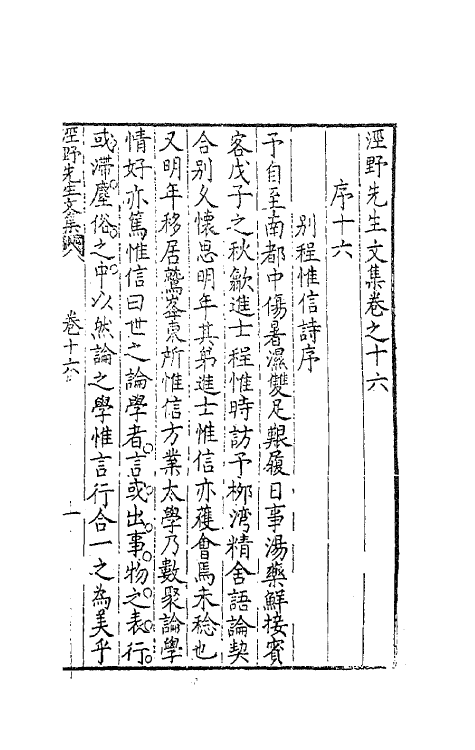 涇野先生文集卷之十六
序十六
別程惟信詩序
予自至南都中傷暑濕雙足艱履日事湯藥鮮接賓
客戊子之秋歙進士程惟時訪予栁湾精舍語論契
合别久懷思明年其弟進士惟信亦獲會焉未稔也
又明年移居鷲峯東所惟信方業太學乃數聚論學
情好亦篤惟信曰世之論學者言或出事物之表行
或滯塵俗之中以然論之學惟言行合一之為美乎
涇野先生文集
卷十六
一